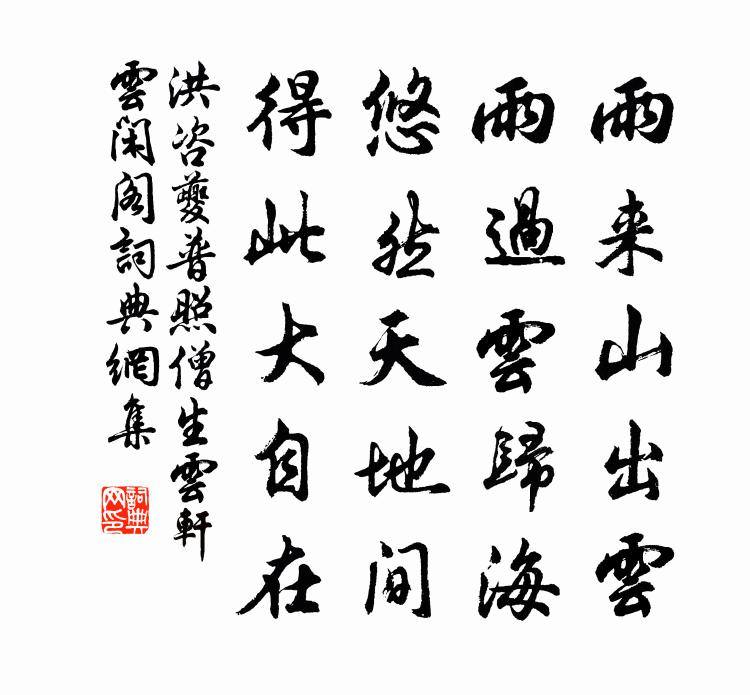 雨来山出雲
雨過雲歸海
悠然天地间
得此大自在
洪咨夔普照僧生雲軒
雲閑阁詞典網集
詞典
网印